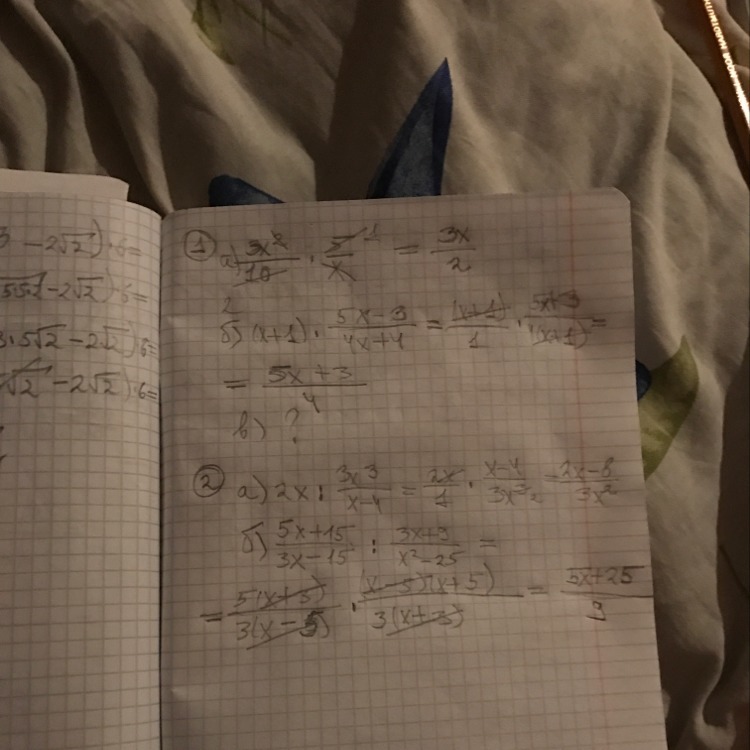 3 - 2√2)·6=
5√2 - 2√2)·6=
3·5√2 - 2√2)6=
√2 - 2√2)·6=
① а) 3x²/10 · 5/x 1 = 3x/2
2
б) (x+1) · (5x-3)/(4x+4) = (x+1)/1 · (5x+3)/(4(x+1)) =
= (5x+3)/4
в) ?
② а) 2x : 3x³/(x-4) = 2x/1 · (x-4)/(3x³) = (2x-8)/(3x²)
б) (5x+15)/(3x-15) : (3x+9)/(x²-25) =
= 5(x+3)/(3(x-5)) · (x-5)(x+5)/(3(x+3)) = (5x+25)/9